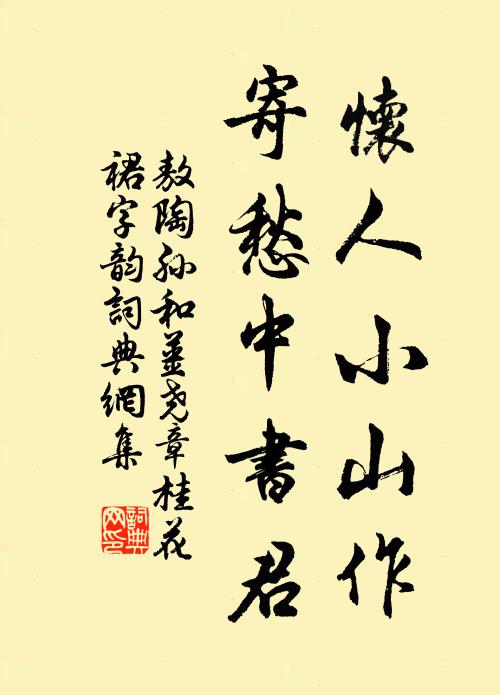 懷人小山作
寄愁中書君
敖陶孫和姜堯章桂花
裙字韵詞典網集
詞典網印